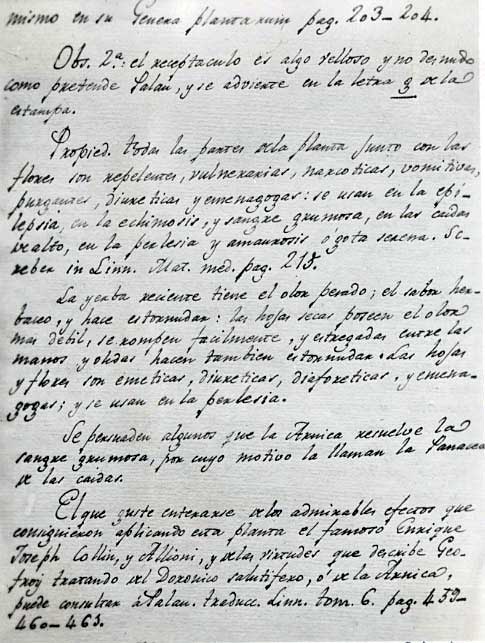 mismo en su Genera plantarum pag. 203-204.
Obs. 2ª: el receptaculo es algo velloso y no desnudo
como pretende Palau, y se advierte en la letra g de la
estampa.
Propied. todas las partes de la planta junto con las
flores son repelentes, vulnerarias, narcoticas, vomitivas,
purgantes, diureticas y emenagogas: se usan en la epi-
lepsia, en la echimosis, y sangre grumosa, en las caidas
de alto, en la perlesia y amaurosis ó gota serena. Sc-
reber in Linn. Mat. med. pag. 215.
La yerba reciente tiene el olor pesado; el sabor her-
baceo, y hace estornudar: las hojas secas poseen el olor
mas débil, se rompen facilmente, y estregadas entre las
manos y olidas hacen tambien estornudar. Las hojas
y flores son emeticas, diureticas, diaforeticas, y emena-
gogas; y se usan en la perlesia.
Se persuaden algunos que la Arnica resuelve la
sangre grumosa, por cuyo motivo la llaman la Panacea
de las caidas.
El que guste enterarse de los admirables efectos que
consiguieron aplicando esta planta el famoso Enrique
Joseph Collin, y Allioni, y de las virtudes que describe Geo-
froy tratando del Doronico salutifero, ó de la Arnica,
puede consultar à Palau. traducc. Linn. tom. 6. pag. 459-
460-463.